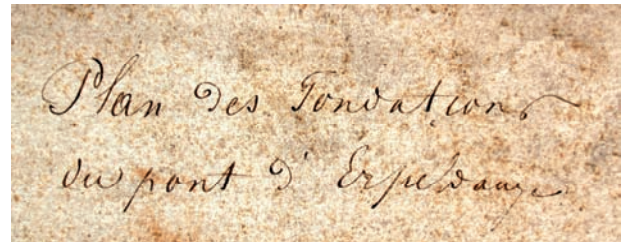 Plan des Fondations
du pont d'Erpeldange